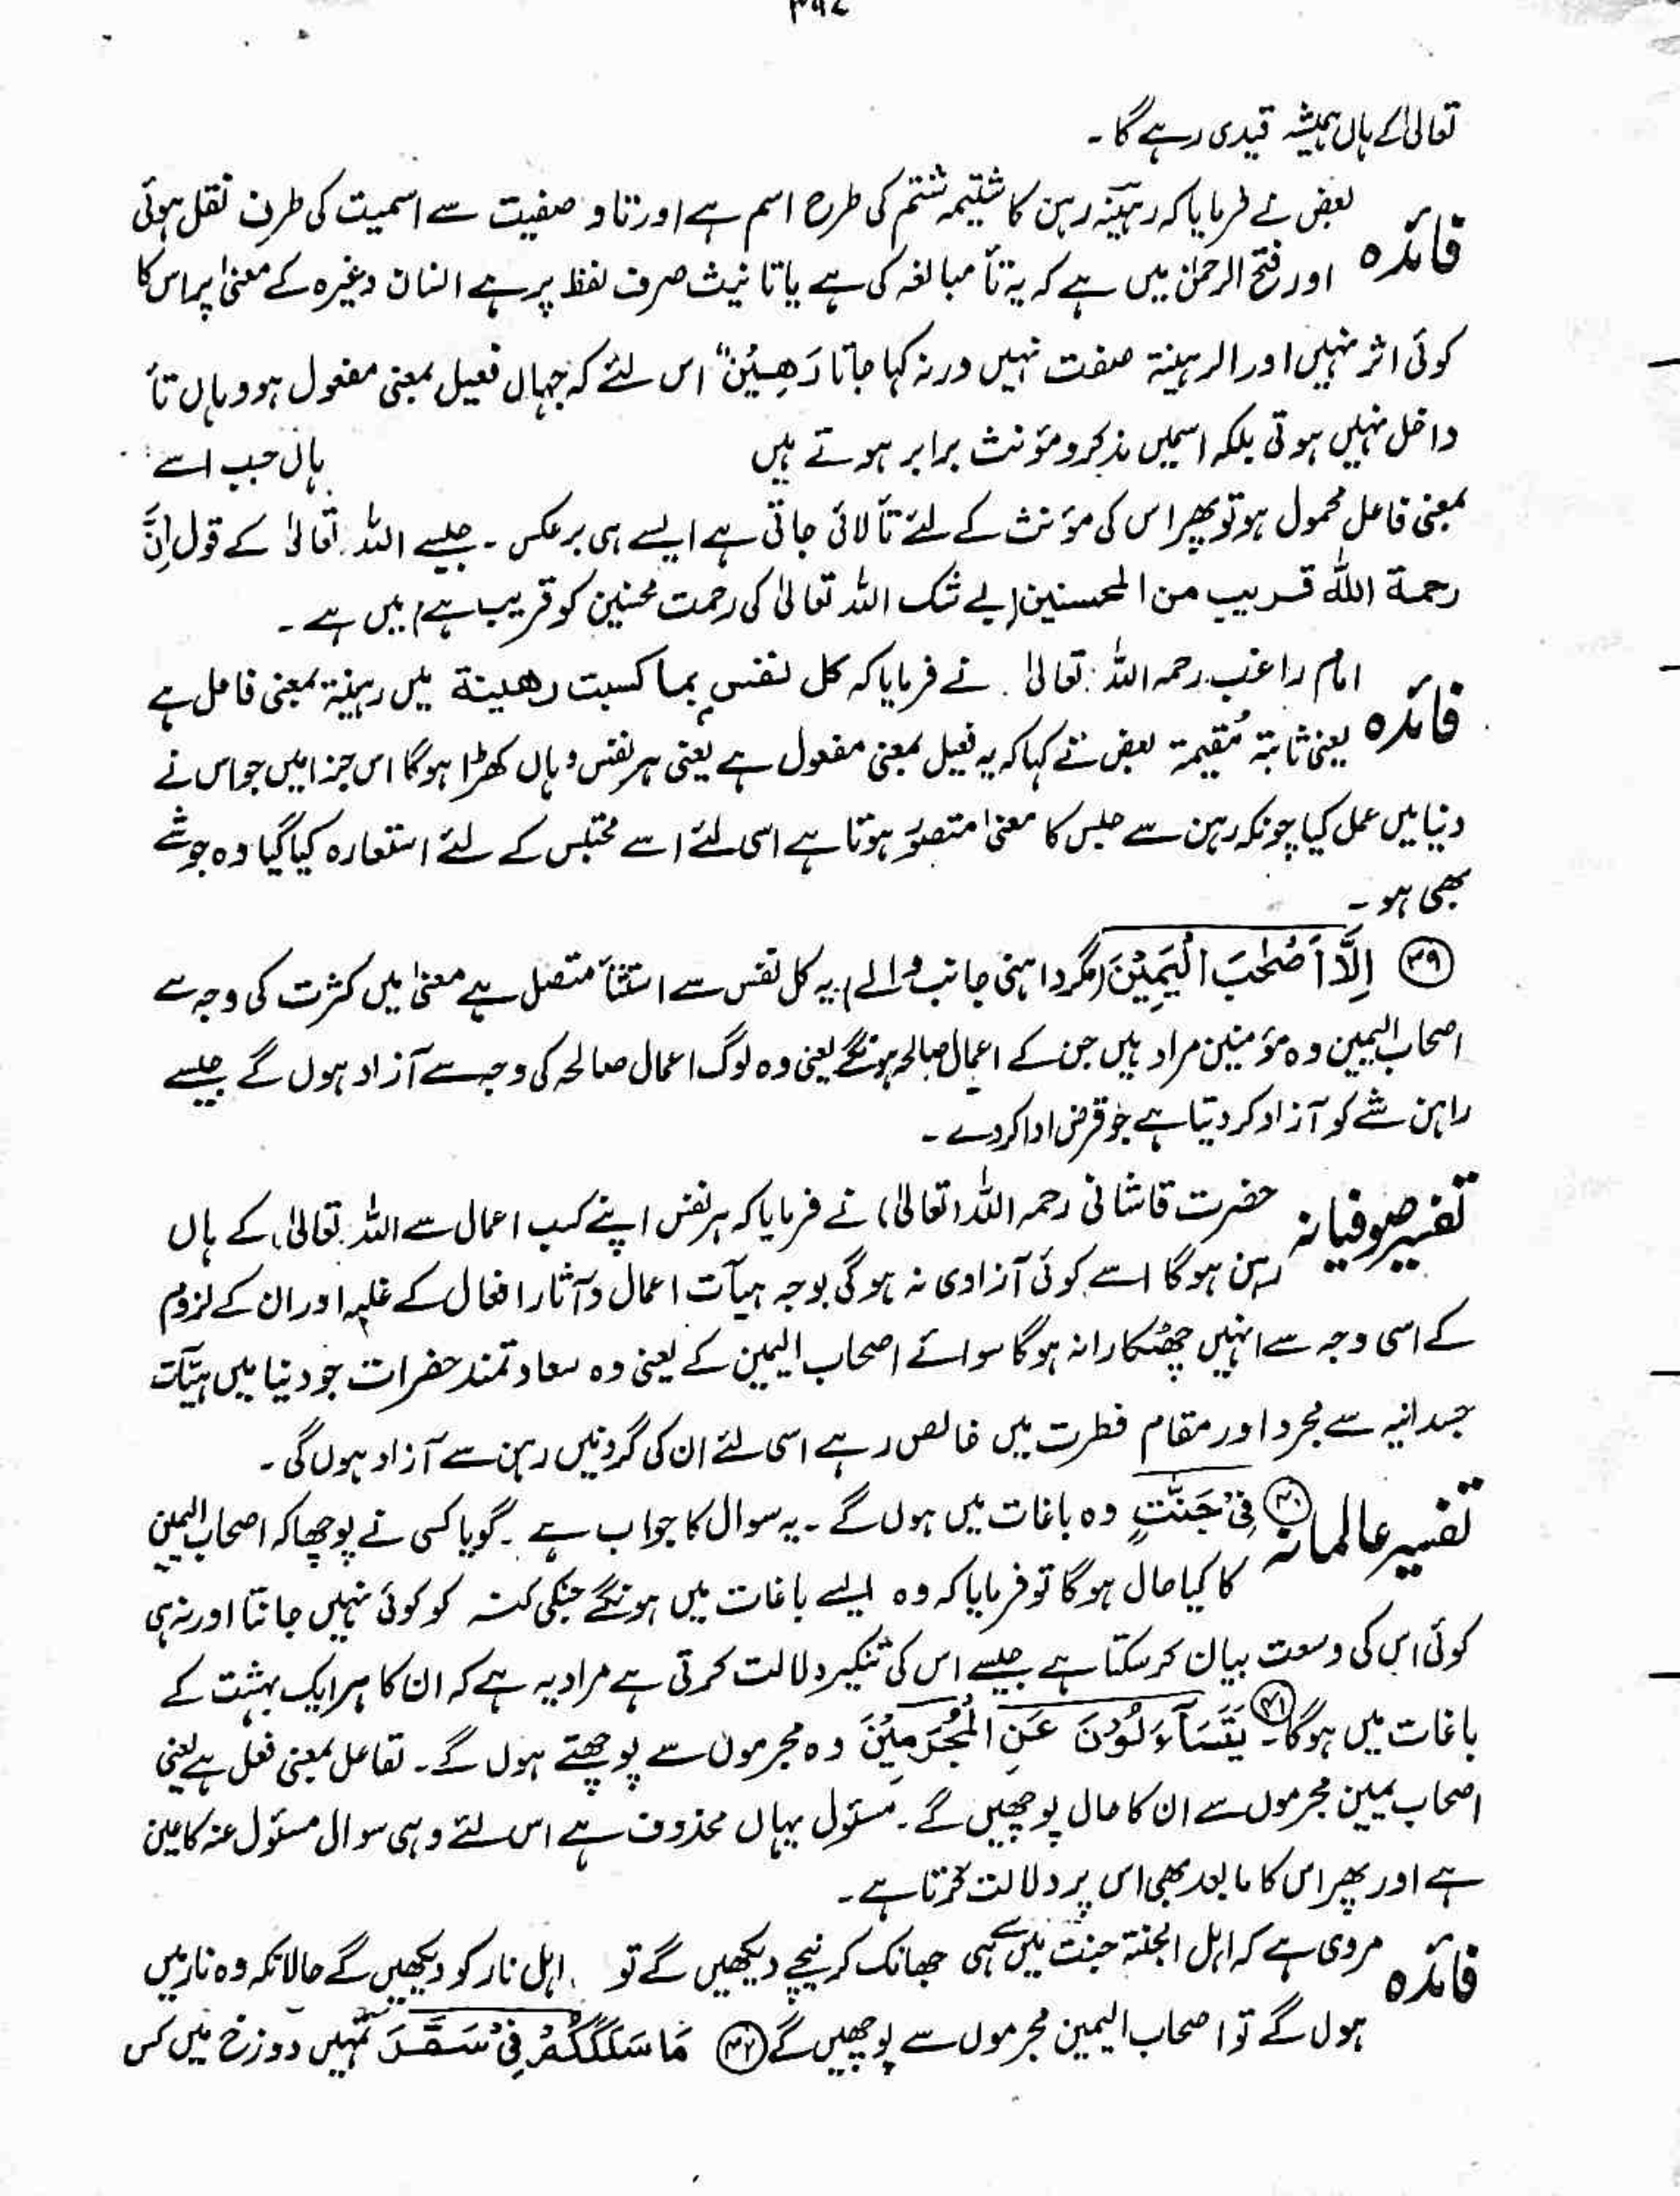 تعالیٰ کے ہاں ہمیشہ قیدی رہے گا۔
فائدہ بعض نے فرمایا کہ رہینہ رہن کا شتیمہ شتم کی طرح اسم ہے اور تاو صفیت سے اسمیت کی طرف نقل ہوئی
اور فتح الرحمٰن میں ہے کہ یہ تأ مبالغہ کی ہے یا تانیث صرف لفظ پر ہے انسان وغیرہ کے معنیٰ پر اس کا
کوئی اثر نہیں اور الرہینۃ صفت نہیں ورنہ کہا جاتا رَهِيْنٌ اس لئے کہ جہاں فعیل بمعنی مفعول ہو وہاں تأ
داخل نہیں ہوتی بلکہ اسمیں مذکر و مؤنث برابر ہوتے ہیں ہاں جب اسے
بمعنی فاعل محمول ہو تو پھر اس کی مؤنث کے لئے تأ لائی جاتی ہے ایسے ہی برعکس۔ جیسے اللہ تعالیٰ کے قول اِنَّ
رحمۃ اللہ قریب من المحسنین (بے شک اللہ تعالیٰ کی رحمت محسنین کو قریب ہے) میں ہے۔
فائدہ امام راغب رحمہ اللہ تعالیٰ نے فرمایا کہ کل نفس بما کسبت رھینۃ میں رہینۃ بمعنی فاعل ہے
یعنی ثابتۃ مُقیمۃ بعض نے کہا کہ یہ فعیل بمعنی مفعول ہے یعنی ہر نفس وہاں کھڑا ہوگا اس جزا میں جو اس نے
دنیا میں عمل کیا چونکہ رہن سے حبس کا معنیٰ متصوّر ہوتا ہے اسی لئے اسے محتبس کے لئے استعارہ کیا گیا وہ جو شے
بھی ہو۔
۳۹ اِلَّا اَصْحٰبَ الْیَمِیْنَ (مگر داہنی جانب والے) یہ کل نفس سے استثنأ متصل ہے معنیٰ میں کثرت کی وجہ سے
اصحاب الیمین وہ مؤمنین مراد ہیں جن کے اعمال صالحہ ہونگے یعنی وہ لوگ اعمال صالحہ کی وجہ سے آزاد ہوں گے جیسے
راہن شے کو آزاد کر دیتا ہے جو قرض ادا کر دے۔
تفسیر صوفیانہ حضرت قاشانی رحمہ اللہ (تعالیٰ) نے فرمایا کہ ہر نفس اپنے کسب اعمال سے اللہ تعالیٰ کے ہاں
رہن ہوگا اسے کوئی آزادی نہ ہو گی بوجہ ہیآت اعمال و آثار افعال کے غلبہ اور ان کے لزوم
کے اسی وجہ سے انہیں چھٹکارا نہ ہوگا سوائے اصحاب الیمین کے یعنی وہ سعادتمند حضرات جو دنیا میں ہیئآت
جسدانیہ سے مجرد اور مقام فطرت میں خالص رہے اسی لئے ان کی گردنیں رہن سے آزاد ہوں گی۔
تفسیر عالمانہ ۴۰ فِیْ جَنّٰتٍ وہ باغات میں ہوں گے۔ یہ سوال کا جواب ہے۔ گویا کسی نے پوچھا کہ اصحاب الیمین
کا کیا حال ہوگا تو فرمایا کہ وہ ایسے باغات میں ہونگے جنکی کنہ کو کوئی نہیں جانتا اور نہ ہی
کوئی اس کی وسعت بیان کر سکتا ہے جیسے اس کی تنکیر دلالت کرتی ہے مراد یہ ہے کہ ان کا ہر ایک بہشت کے
باغات میں ہوگا۔ ۴۱ یَتَسَآءَلُوْنَ عَنِ الْمُجْرِمِیْنَ وہ مجرموں سے پوچھتے ہوں گے۔ تفاعل بمعنی فعل ہے یعنی
اصحاب یمین مجرموں سے ان کا حال پوچھیں گے۔ مسئول یہاں محذوف ہے اس لئے وہی سوال مسئول عنہ کا عین
ہے اور پھر اس کا مابعد بھی اس پر دلالت کرتا ہے۔
فائدہ مروی ہے کہ اہل الجنۃ جنت میں سے ہی جھانک کر نیچے دیکھیں گے تو اہل نار کو دیکھیں گے حالانکہ وہ نار میں
ہوں گے تو اصحاب الیمین مجرموں سے پوچھیں گے ۴۲ مَا سَلَكَكُمْ فِیْ سَقَرَ تمہیں دوزخ میں کس